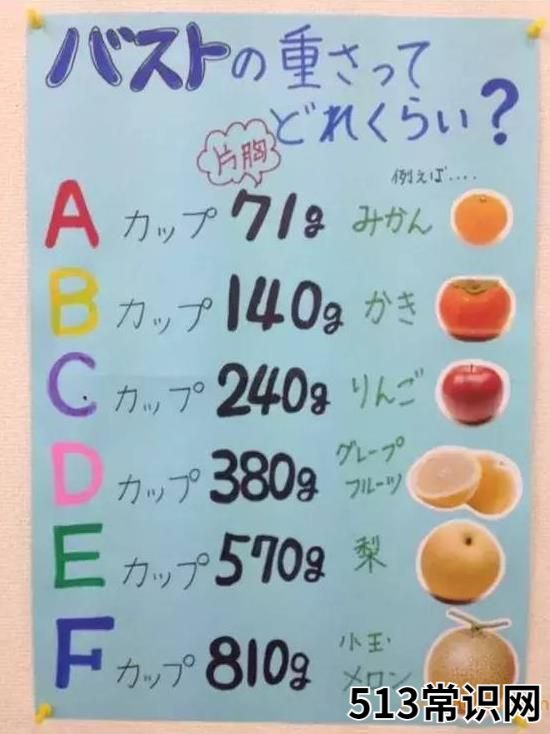 バストの重さって
どれくらい?
片胸
例えば....
A カップ 71g みかん
B カップ 140g かき
C カップ 240g りんご
D カップ 380g グレープ
フルーツ
E カップ 570g 梨
F カップ 810g 小玉
メロン
513常识网